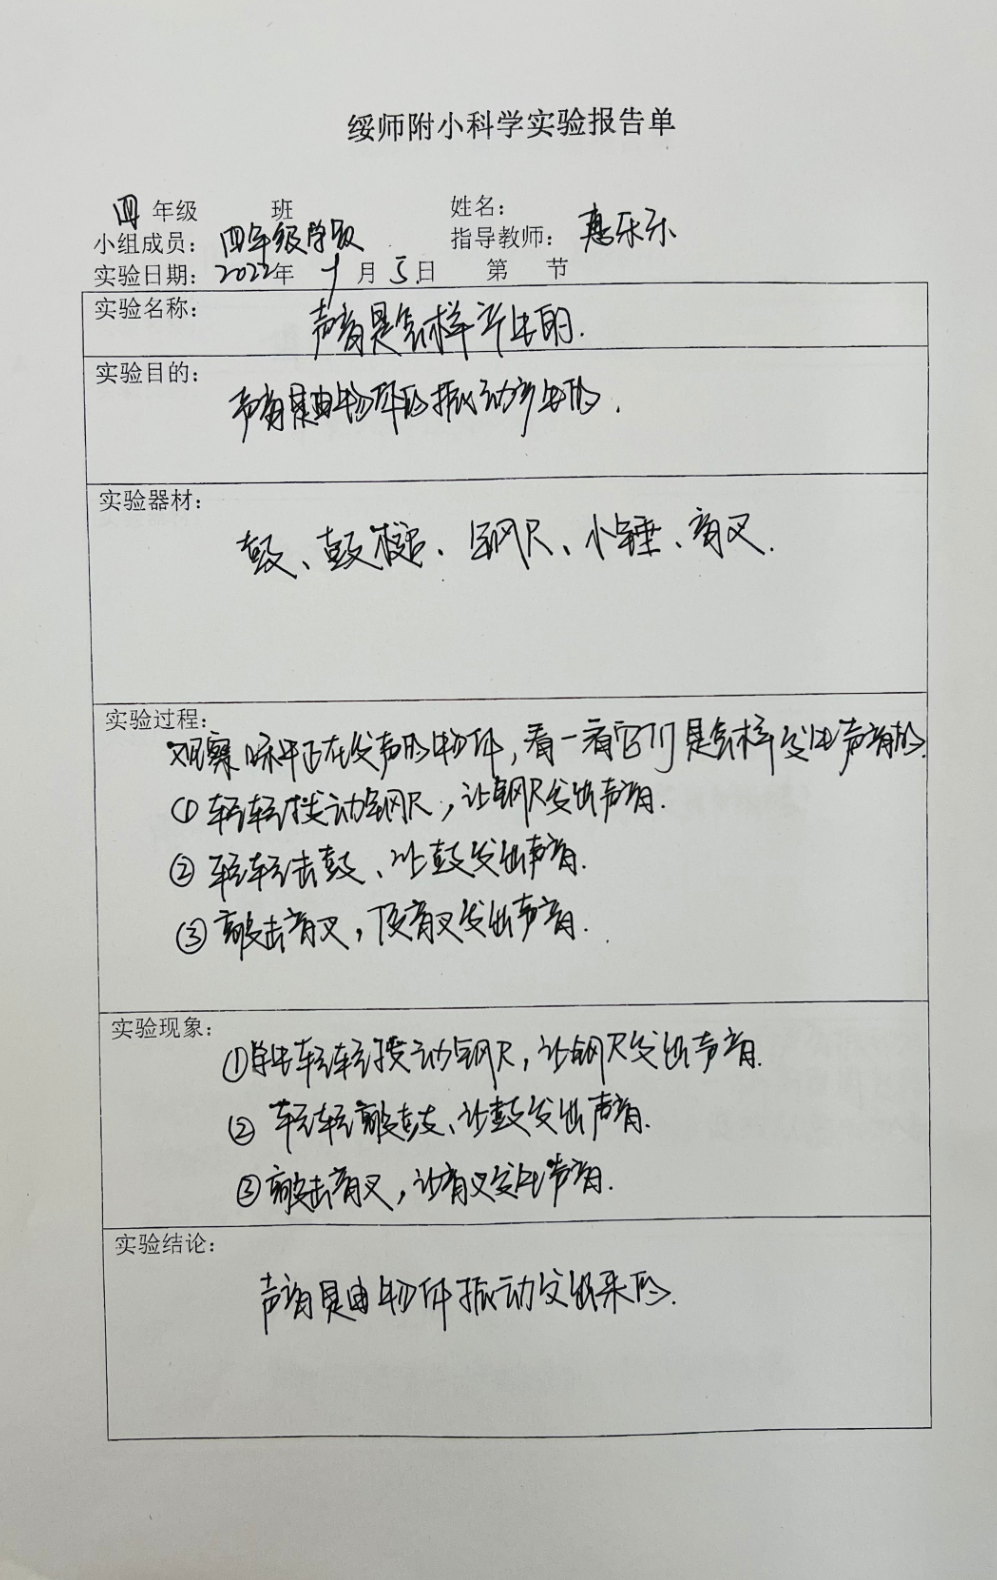 绥师附小科学实验报告单
四 年级 班 姓名：
小组成员： 四年级学员 指导教师： 惠乐乐
实验日期： 2022年 9月 5日 第 节
实验名称：
声音是怎样产生的.
实验目的：
声音是由物体的振动产生的.
实验器材：
鼓、鼓槌、钢尺、小锤、音叉.
实验过程：
观察 正在发声的物体，看一看它们是怎样发出声音的
① 轻轻拨动钢尺，让钢尺发出声音.
② 轻轻击鼓、让鼓发出声音.
③ 敲击音叉， 音叉发出声音.
实验现象：
① 轻轻拨动钢尺，让钢尺发出声音.
② 轻轻敲鼓、让鼓发出声音.
③ 敲击音叉，让音叉发出声音.
实验结论：
声音是由物体振动发出来的.